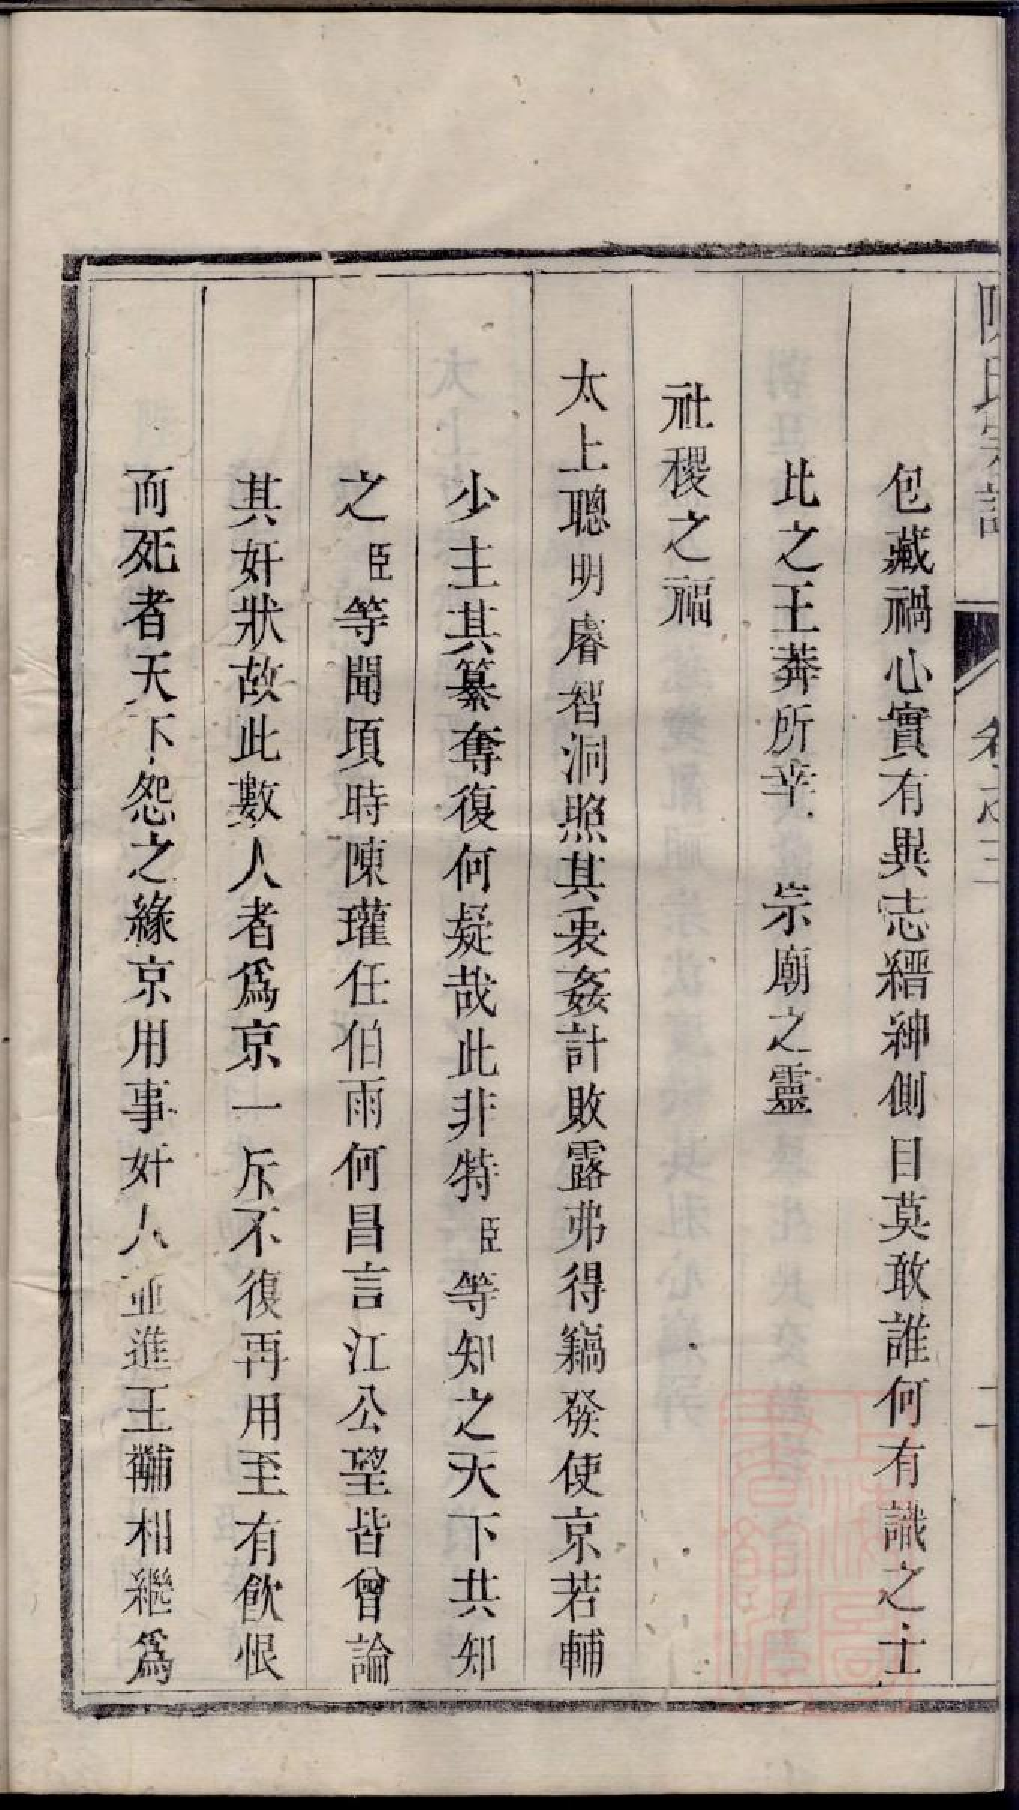 陳氏宗譜 卷之三
包藏禍心實有異志縉紳側目莫敢誰何有識之士
比之王莽所幸 宗廟之靈
社稷之福
太上聰明睿智洞照其裏姦計敗露弗得竊發使京若輔
少主其纂奪復何疑哉此非特臣等知之天下共知
之臣等聞頃時陳瓘任伯雨何昌言江公望皆曾論
其奸狀故此數人者爲京一斥不復再用至有飲恨
而死者天下怨之緣京用事奸人並進王黼相繼爲